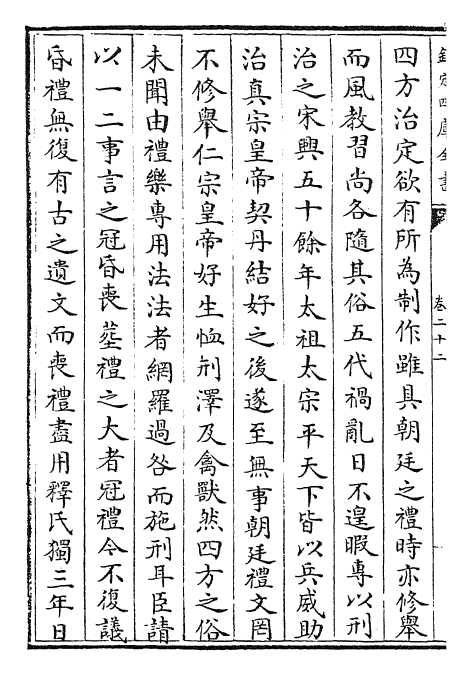 欽定四庫全書
卷二十二
四方治定欲有所為制作雖具朝廷之禮時亦修舉
而風教習尚各隨其俗五代禍亂日不遑暇專以刑
治之宋興五十餘年太祖太宗平天下皆以兵威助
治真宗皇帝契丹結好之後遂至無事朝廷禮文罔
不修舉仁宗皇帝好生恤刑澤及禽獸然四方之俗
未聞由禮樂專用法法者網羅過咎而施刑耳臣請
以一二事言之冠昏喪塟禮之大者冠禮今不復議
昏禮無復有古之遺文而喪禮盡用釋氏獨三年日